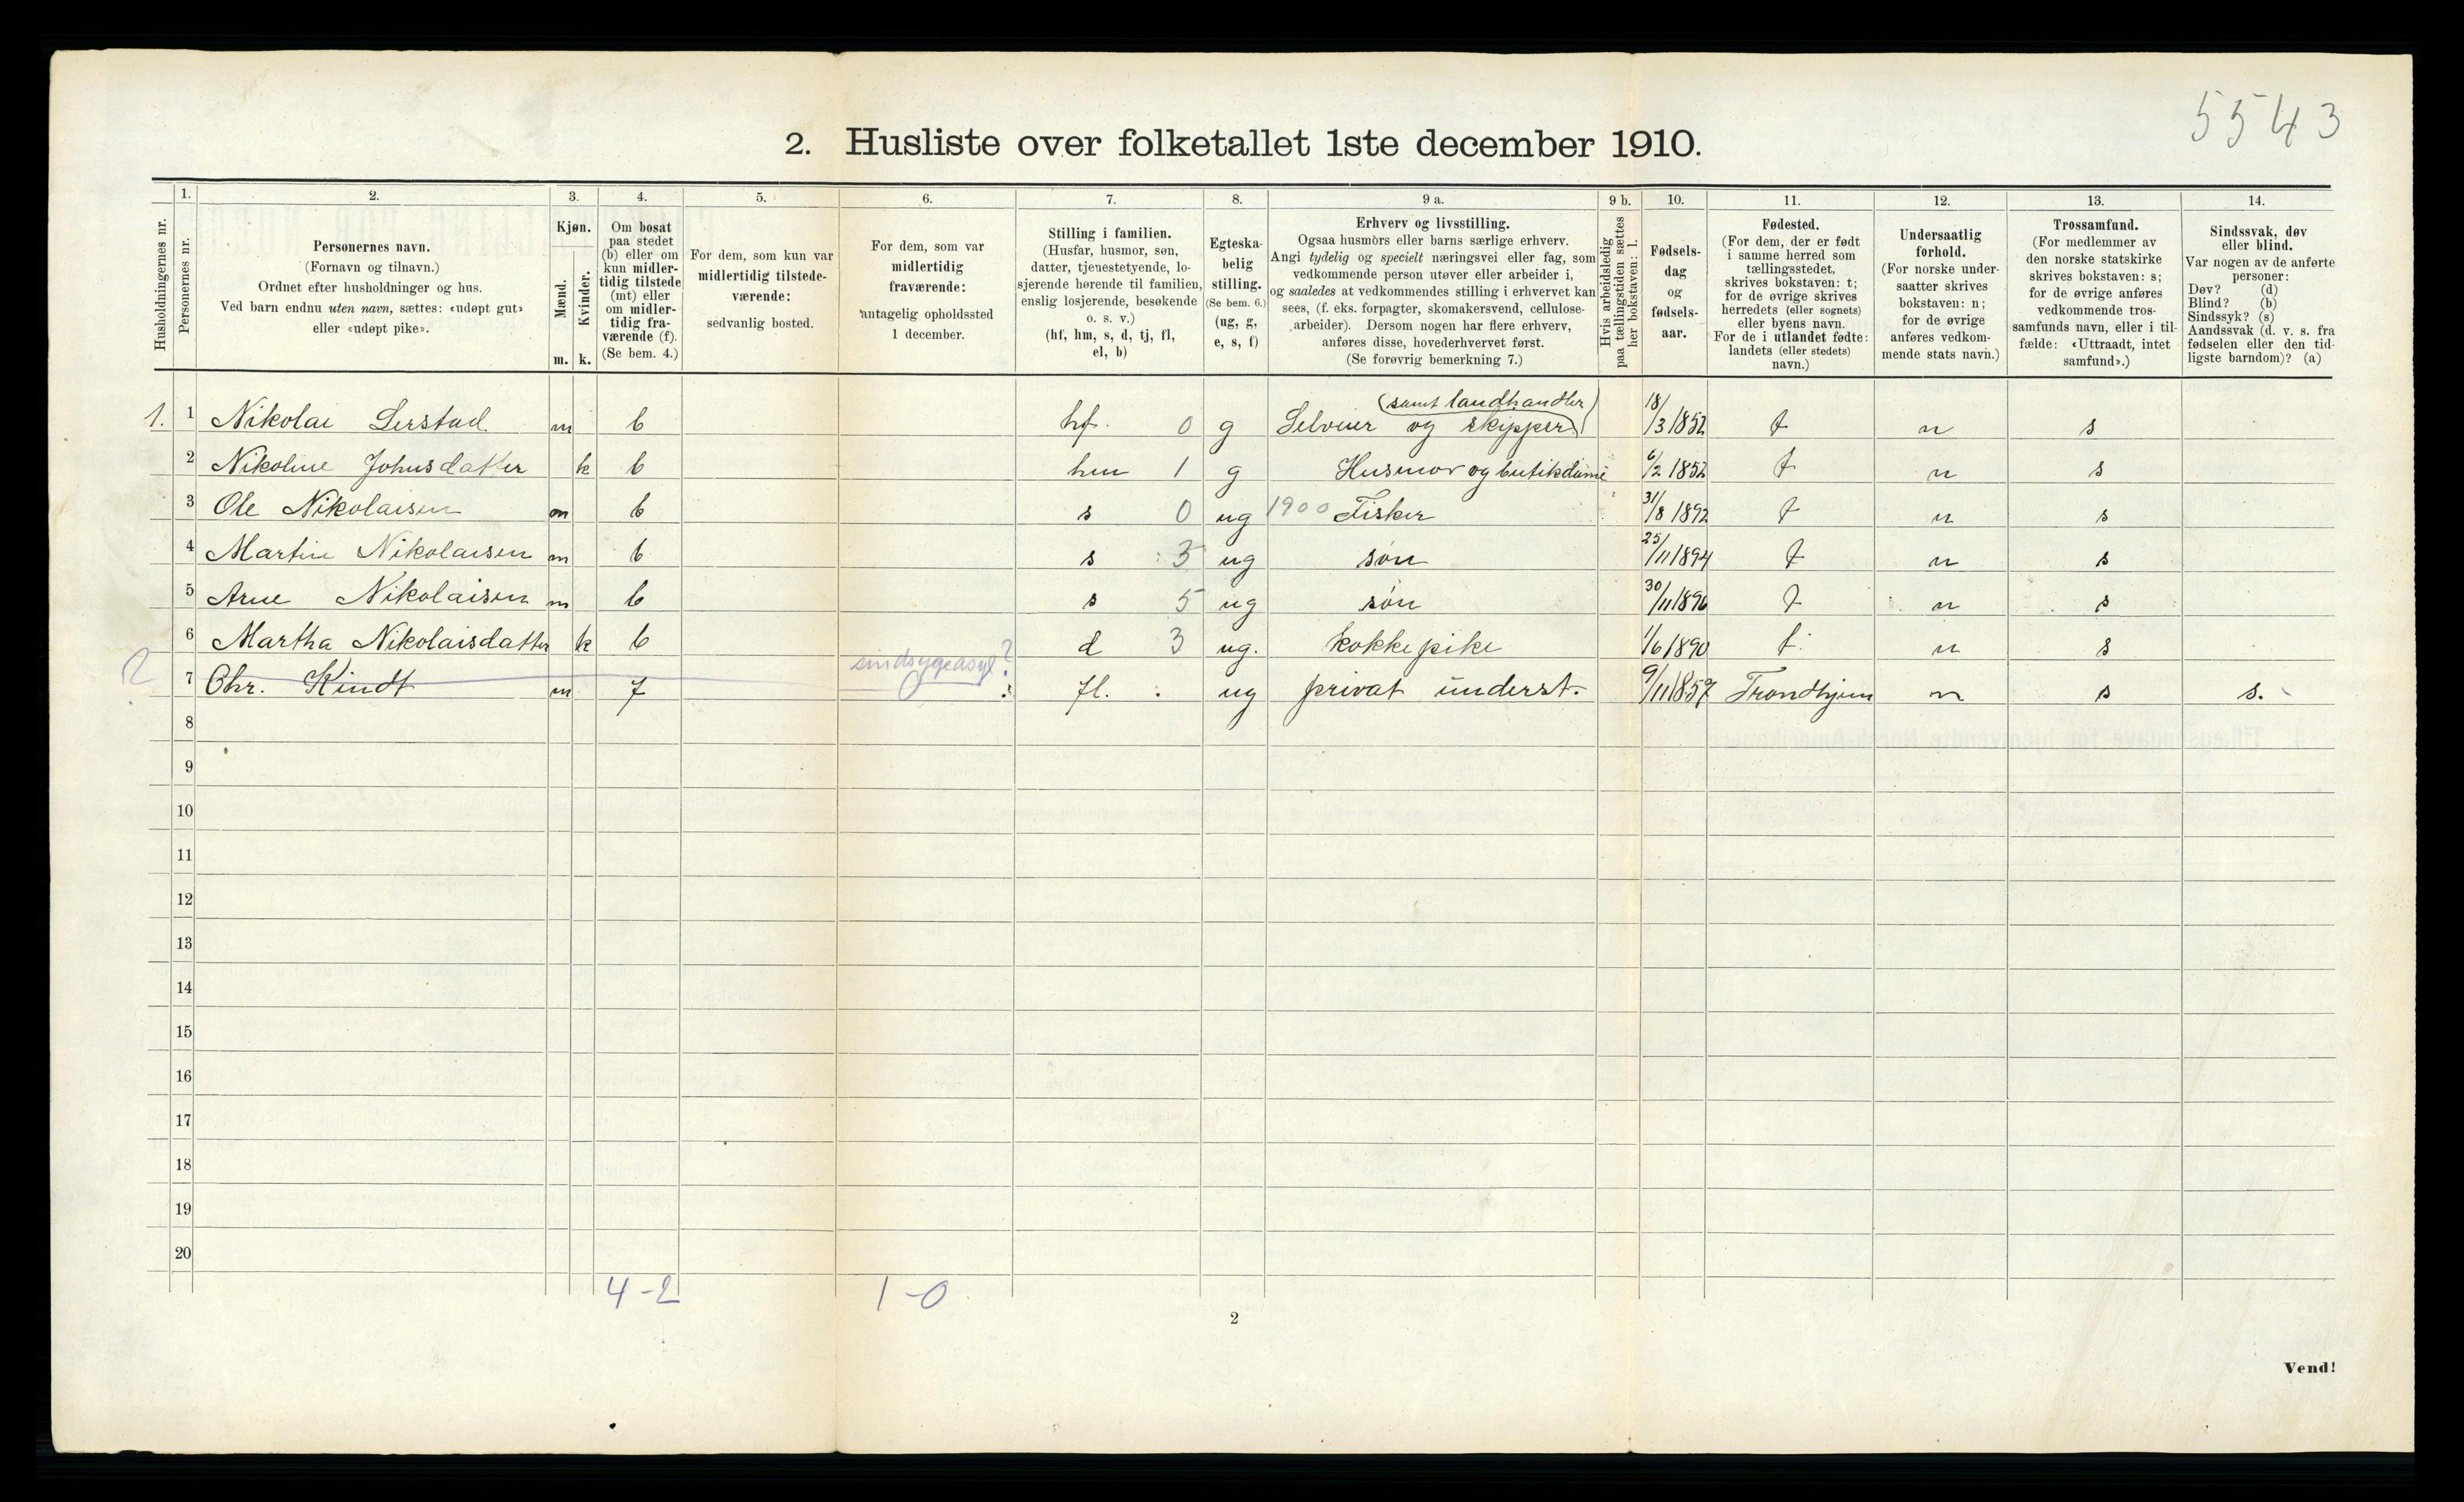 5543
2. Husliste over folketallet 1ste december 1910.
Husholdningernes nr.
1.
Personernes nr.
2.
Personernes navn.
(Fornavn og tilnavn.)
Ordnet efter husholdninger og hus.
Ved barn endnu uten navn, sættes: «udøpt gut»
eller «udøpt pike».
3.
Kjøn.
Mænd.
Kvinder.
m. k.
4.
Om bosat
paa stedet
(b) eller om
kun midler-
tidig tilstede
(mt) eller
om midler-
tidig fra-
værende (f).
(Se bem. 4.)
5.
For dem, som kun var
midlertidig tilstede-
værende:
sedvanlig bosted.
6.
For dem, som var
midlertidig
fraværende:
antagelig opholdssted
1 december.
7.
Stilling i familien.
(Husfar, husmor, søn,
datter, tjenestetyende, lo-
sjerende hørende til familien,
enslig losjerende, besøkende
o. s. v.)
(hf, hm, s, d, tj, fl,
el, b)
8.
Egteska-
belig
stilling.
(Se bem. 6.)
(ug, g,
e, s, f)
9 a.
Erhverv og livsstilling.
Ogsaa husmors eller barns særlige erhverv.
Angi tydelig og specielt næringsvei eller fag, som
vedkommende person utøver eller arbeider i,
og saaledes at vedkommendes stilling i erhvervet kan
sees, (f. eks. forpagter, skomakersvend, cellulose-
arbeider). Dersom nogen har flere erhverv,
anføres disse, hovederhvervet først.
(Se forøvrig bemerkning 7.)
9 b.
Hvis arbeidsledig
paa tællingstiden sættes
her bokstaven: l.
10.
Fødsels-
dag
og
fødsels-
aar.
11.
Fødested.
(For dem, der er født
i samme herred som
tællingsstedet,
skrives bokstaven: t;
for de øvrige skrives
herredets (eller sognets)
eller byens navn.
For de i utlandet fødte:
landets (eller stedets)
navn.)
12.
Undersaatlig
forhold.
(For norske under-
saatter skrives
bokstaven: n;
for de øvrige
anføres vedkom-
mende stats navn.)
13.
Trossamfund.
(For medlemmer av
den norske statskirke
skrives bokstaven: s;
for de øvrige anføres
vedkommende tros-
samfunds navn, eller i til-
fælde: «Uttraadt, intet
samfund».)
14.
Sindssvak, døv
eller blind.
Var nogen av de anførte
personer:
Døv? (d)
Blind? (b)
Sindssyk? (s)
Aandssvak (d. v. s. fra
fødselen eller den tid-
ligste barndom)? (a)
(samt landhandler)
1. 1 Nikolai Lerstad m b hf. 0 g Selveier og skipper 18/3 1852 t n s
2 Nikoline Johnsdatter k b hm 1 g Husmor og butikdame 6/2 1852 t n s
3 Ole Nikolaisen m b s 0 ug 1900 Fisker 31/8 1892 t n s
4 Martin Nikolaisen m b s 3 ug søn 25/11 1894 t n s
5 Arne Nikolaisen m b s 5 ug søn 30/11 1896 t n s
6 Martha Nikolaisdatter k b d 3 ug. kokkepike 1/6 1890 t. n s
7 Chr. Kindt m f sindsygeasyl? fl. ug privat underst. 9/11 1857 Trondhjem n s s.
8
9
10
11
12
13
14
15
16
17
18
19
20
4-2 1-0
2
Vend!